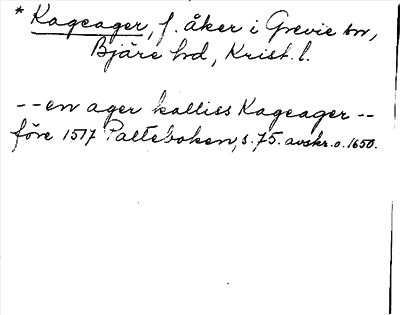 * Kageager, f. åker i Grevie sn,
Bjäre hd, Krist. l.
-- en ager kalliss Kageager --
före 1517 Palteboken, s. 75. avskr. o. 1650.